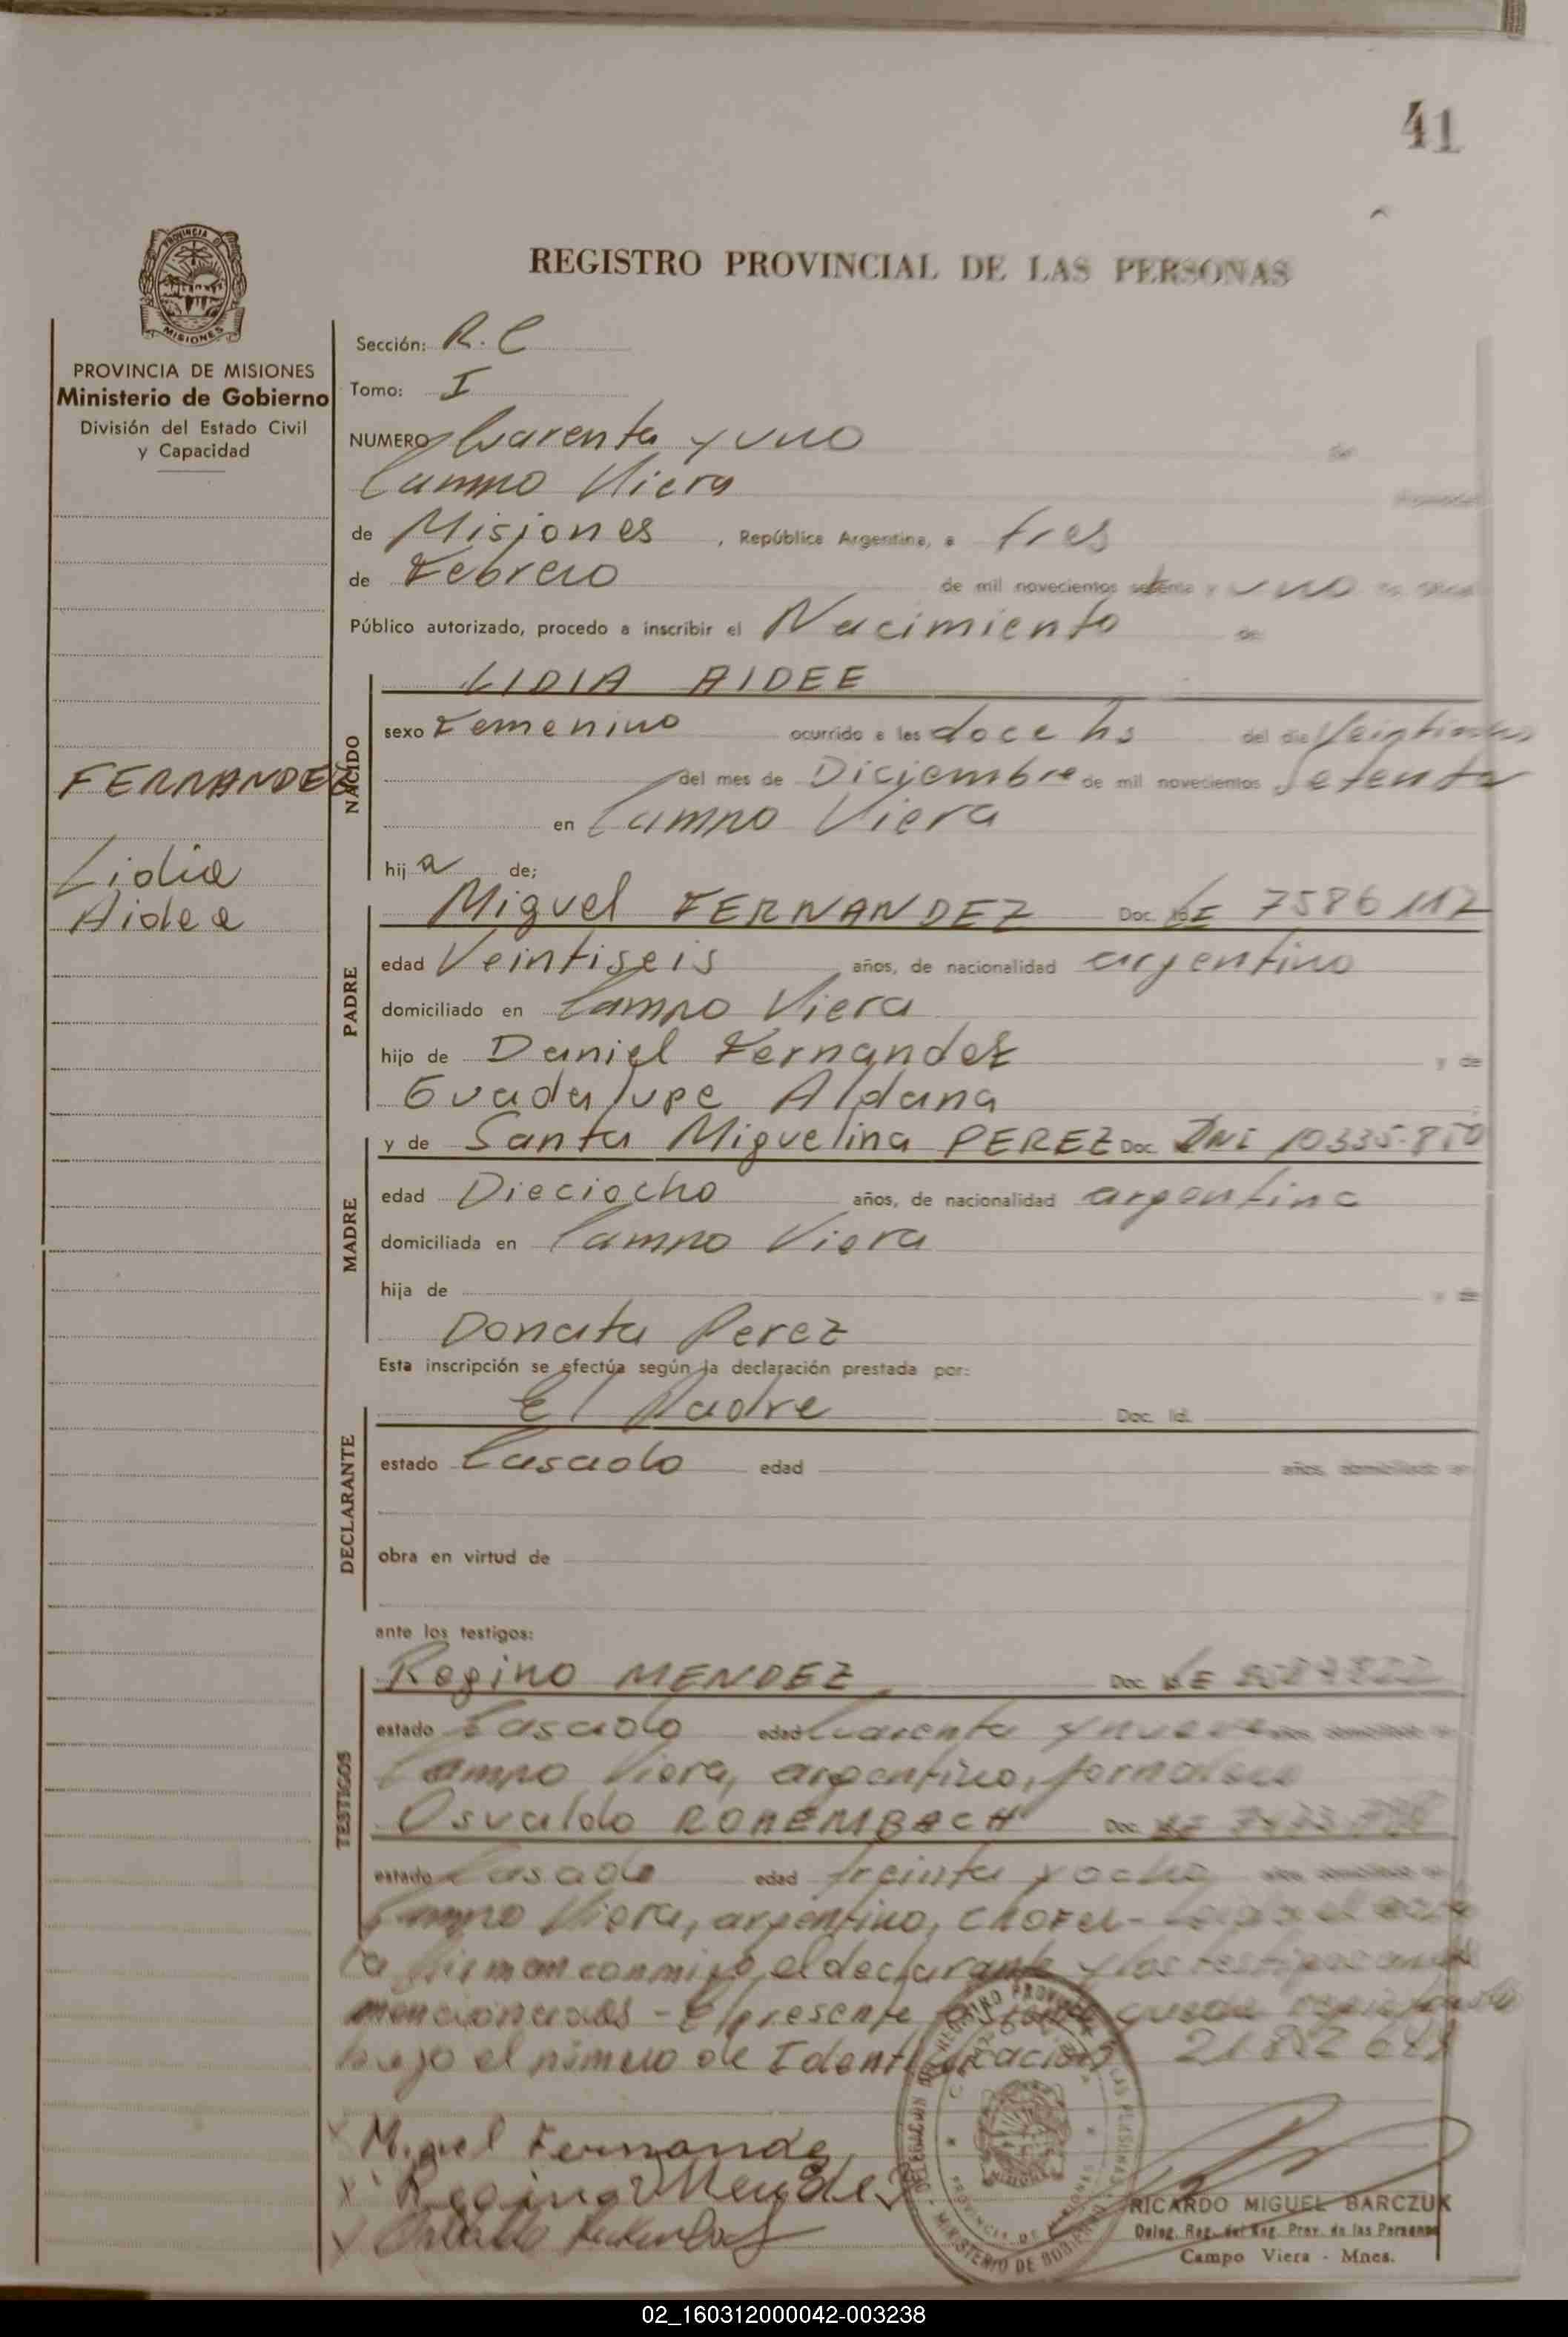 41
REGISTRO PROVINCIAL DE LAS PERSONAS
PROVINCIA DE
MISIONES
PROVINCIA DE MISIONES
Ministerio de Gobierno
División del Estado Civil
y Capacidad
FERNANDEZ
Lidia
Aidee
Sección: R. C
Tomo: I
NUMERO Cuarenta y uno de
Campo Viera
de Misiones, República Argentina, a tres
de Febrero de mil novecientos setenta y uno
Público autorizado, procedo a inscribir el Nacimiento de
NACIDO
LIDIA AIDEE
sexo Femenino ocurrido a las doce hs del día
del mes de Diciembre de mil novecientos Setenta
en Campo Viera
hij a de;
PADRE
Miguel FERNANDEZ Doc. LE 7586117
edad Veintiseis años, de nacionalidad argentino
domiciliado en Campo Viera
hijo de Daniel Fernandez y de
Guadalupe Aldana
MADRE
y de Santa Miguelina PEREZ Doc. DNI 10335.850
edad Dieciocho años, de nacionalidad argentina
domiciliada en Campo Viera
hija de y de
Donata Perez
Esta inscripción se efectúa según la declaración prestada por:
DECLARANTE
El Padre Doc. Id.
estado Casado edad años, domiciliado en
obra en virtud de
ante los testigos:
TESTIGOS
Regino MENDEZ Doc. LE
estado Casado edad Cuarenta y nueve años domiciliado en
Campo Viera, argentino, jornalero
Osvaldo ROHEMBACH Doc. LE
estado Casado edad treinta y ocho años domiciliado en
Campo Viera, argentino, chofer - Leida el acta
la firman conmigo, el declarante y los testigos
mencionados - El presente queda registrado
bajo el número de Identificación 21852
Miguel Fernandez
Regino Mendez
RICARDO MIGUEL BARCZUK
Deleg. Reg. del Reg. Prov. de las Personas
Campo Viera - Mnes.
02_160312000042-003238